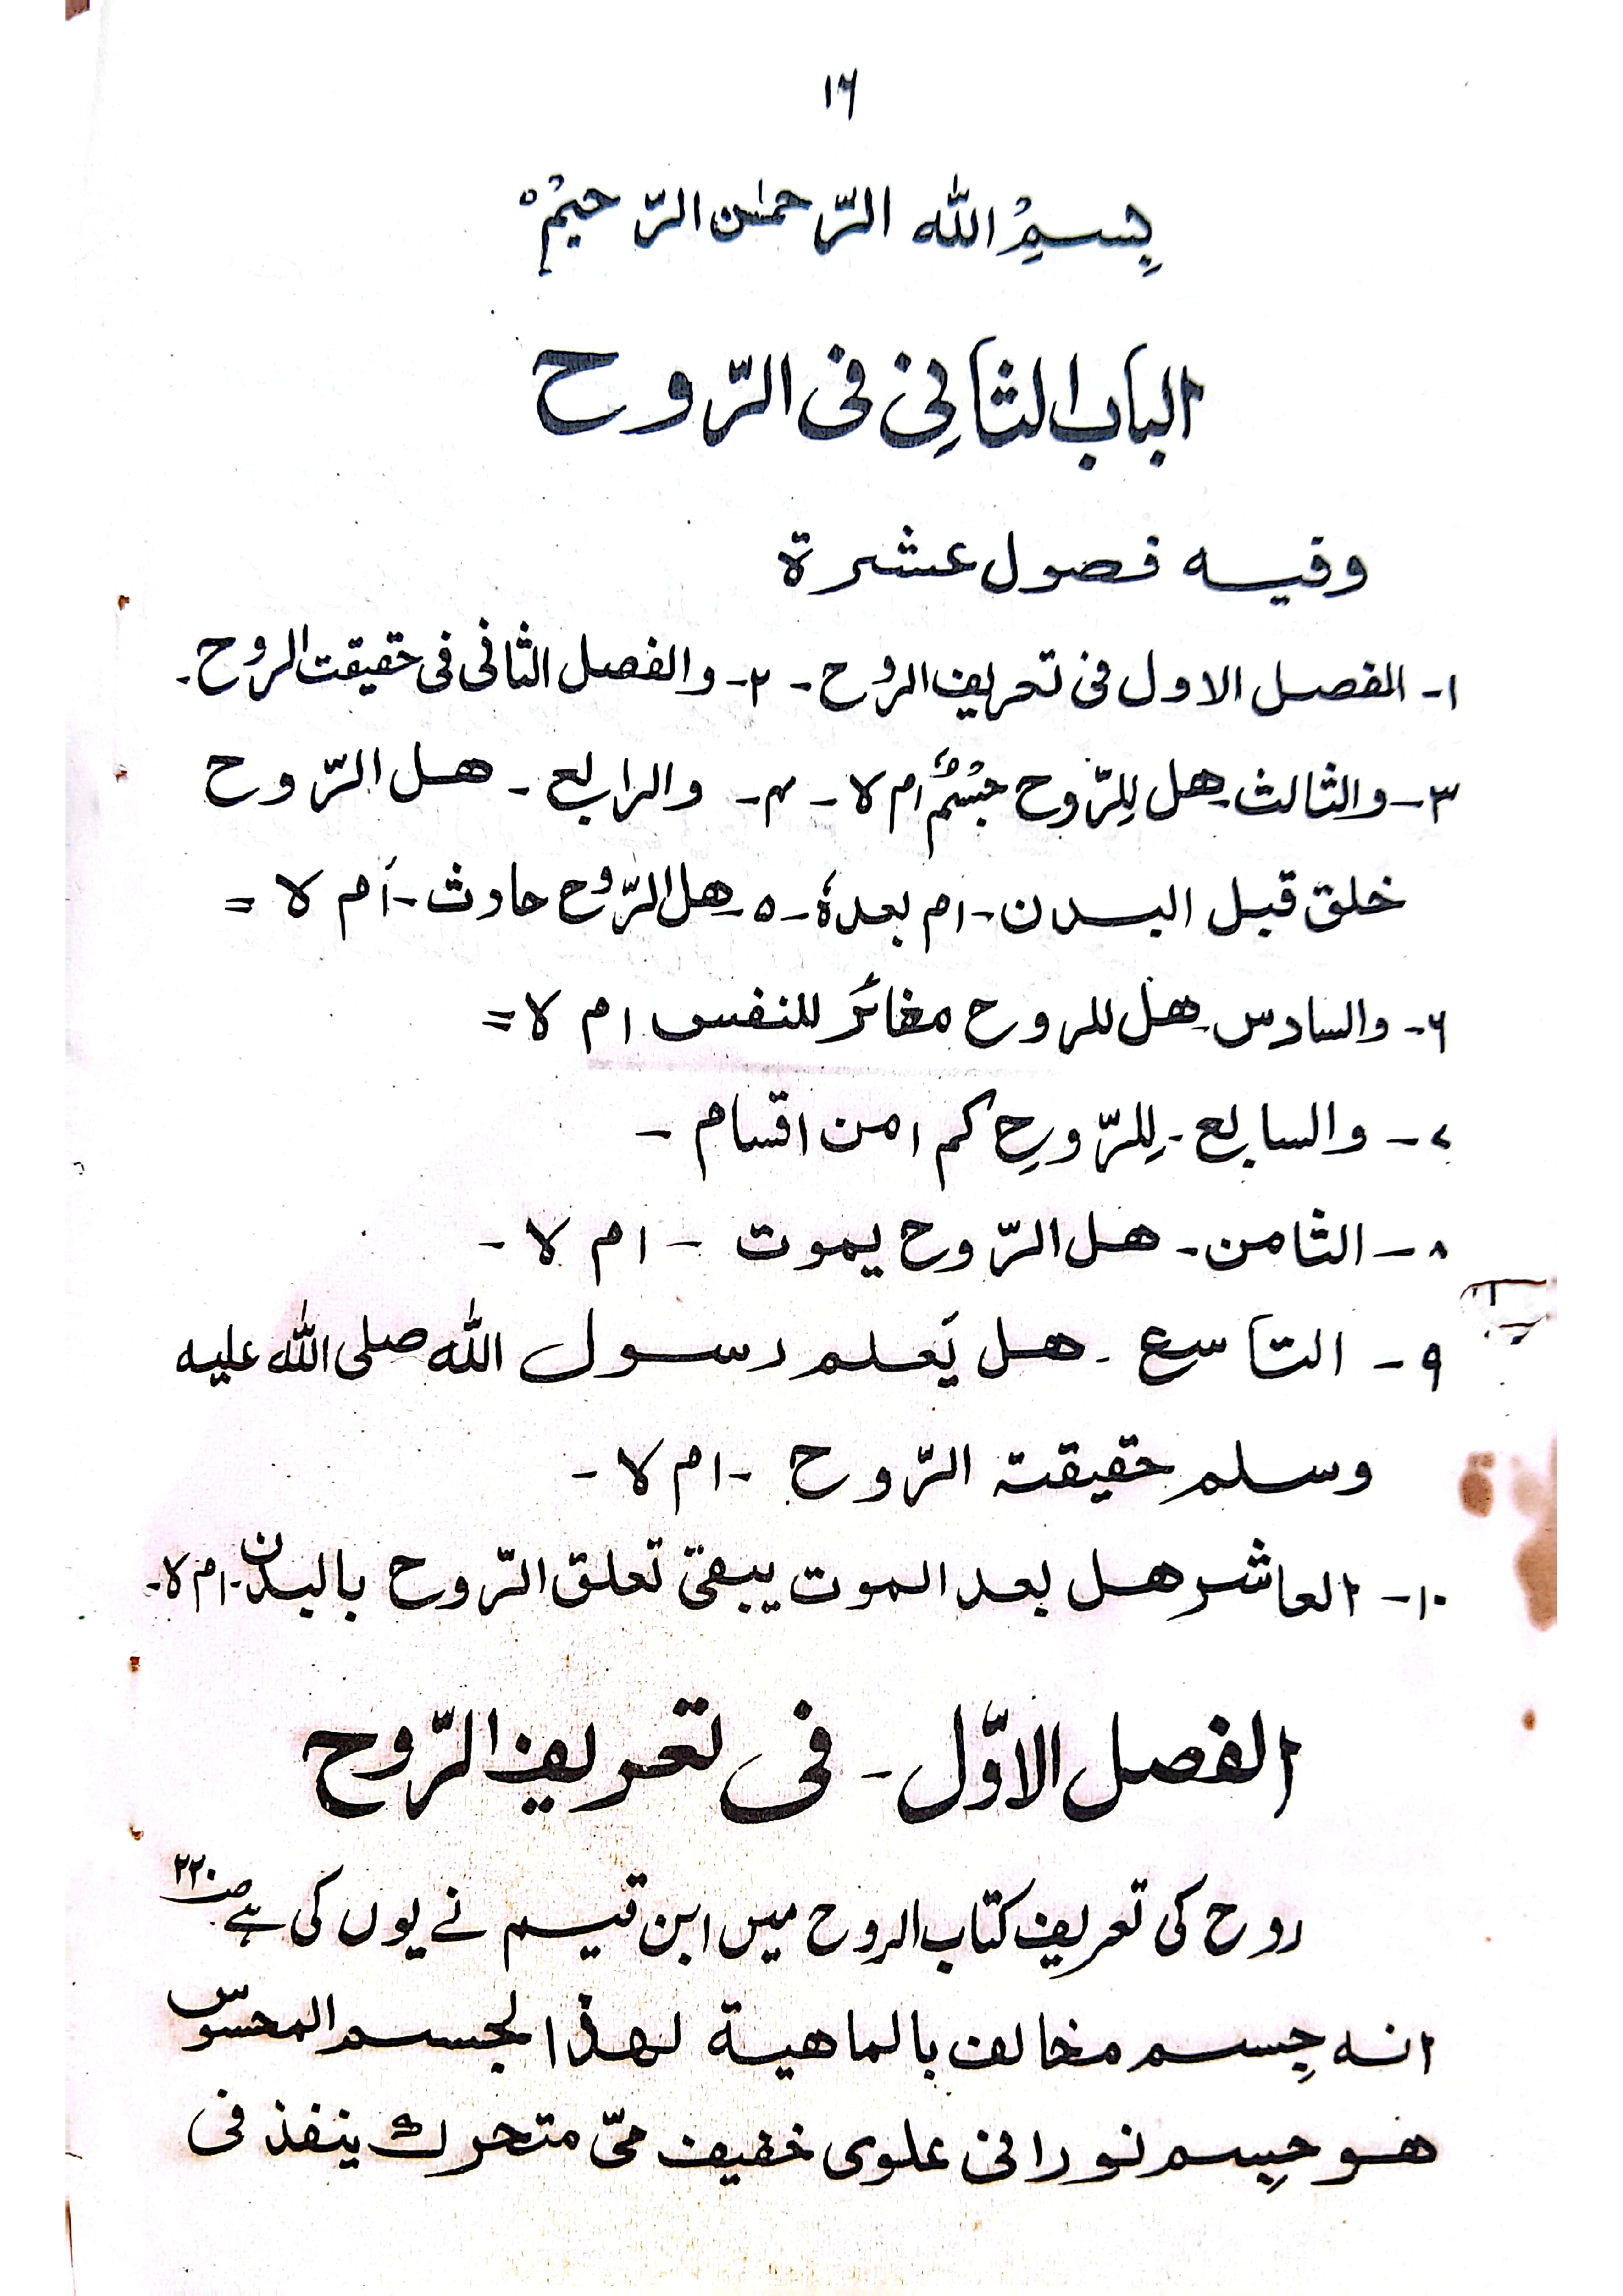 ۱۶
بِسمِ اللہ الرّحمٰن الرّحیمْ ہ
الباب الثانِی فی الرّوح
وفیہ فصول عشرۃ
۱- الفصل الاول فی تعریف الرُوح - ۲- والفصل الثانی فی حقیقت الرُوح -
۳- والثالث - هل لِلرّوح جِسْمٌ ام لا - ۴- والرابع - هل الرّوح
خلق قبل البدن - ام بعدہٗ - ۵ - هل الرّوح حادث - أم لا =
۶- والسادس - هل للروح مغائرٌ للنفس ام لا =
۷- والسابع - لِلرّوحِ کم امن اقسام -
۸- الثامن - هل الرّوح یموت - ام لا -
۹- التاسع - هل یَعلم رسول اللہ صلی اللہ علیہ
وسلم حقیقتہ الرّوح - ام لا -
۱۰- العاشر هل بعد الموت یبقیٰ تعلق الرّوح بالبدن - ام لا -
الفصل الاوّل - فی تعریف الرّوح
روح کی تعریف کتاب الروح میں ابن قیم نے یوں کی ہے صـ ۲۲۰
انہ جِسم مخالف بالماھیۃ لھذا لجسم المحسوس
ھو جِسم نورانی علوی خفیف حیّ متحرک ینفذ فی